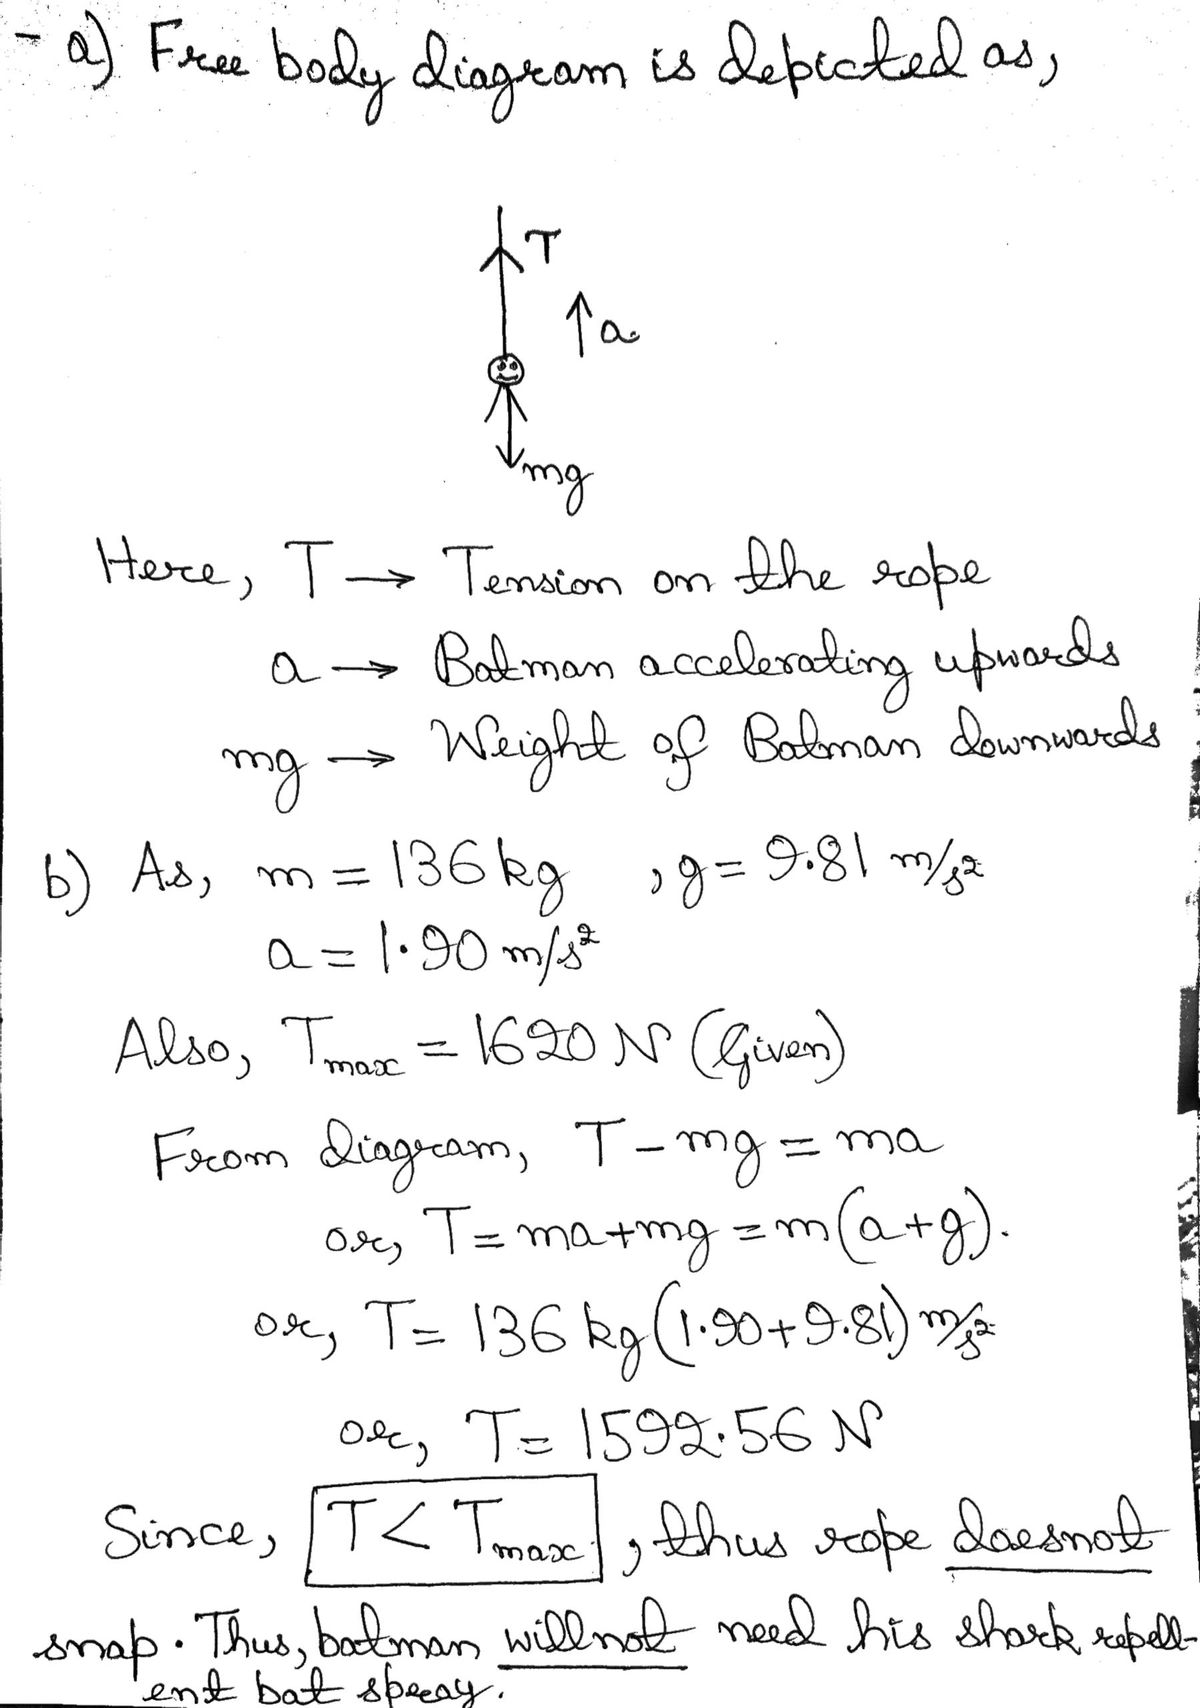 a) Free body diagram is depicted as,
T
↑a
mg
Here, T → Tension on the rope
a → Batman accelerating upwards
mg → Weight of Batman downwards
b) As, m = 136 kg , g = 9.81 m/s²
a = 1.90 m/s²
Also, Tmax = 1620 N (Given)
From diagram, T - mg = ma
or, T = ma + mg = m(a+g).
or, T = 136 kg (1.90 + 9.81) m/s²
or, T = 1592.56 N
Since, T < Tmax , thus rope doesnot
snap. Thus, batman will not need his shark repell-
ent bat spray.